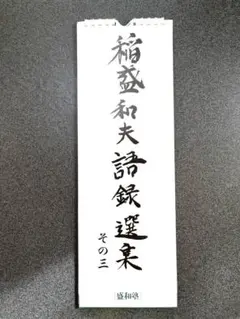 稲盛和夫語録選集
その三
盛和塾